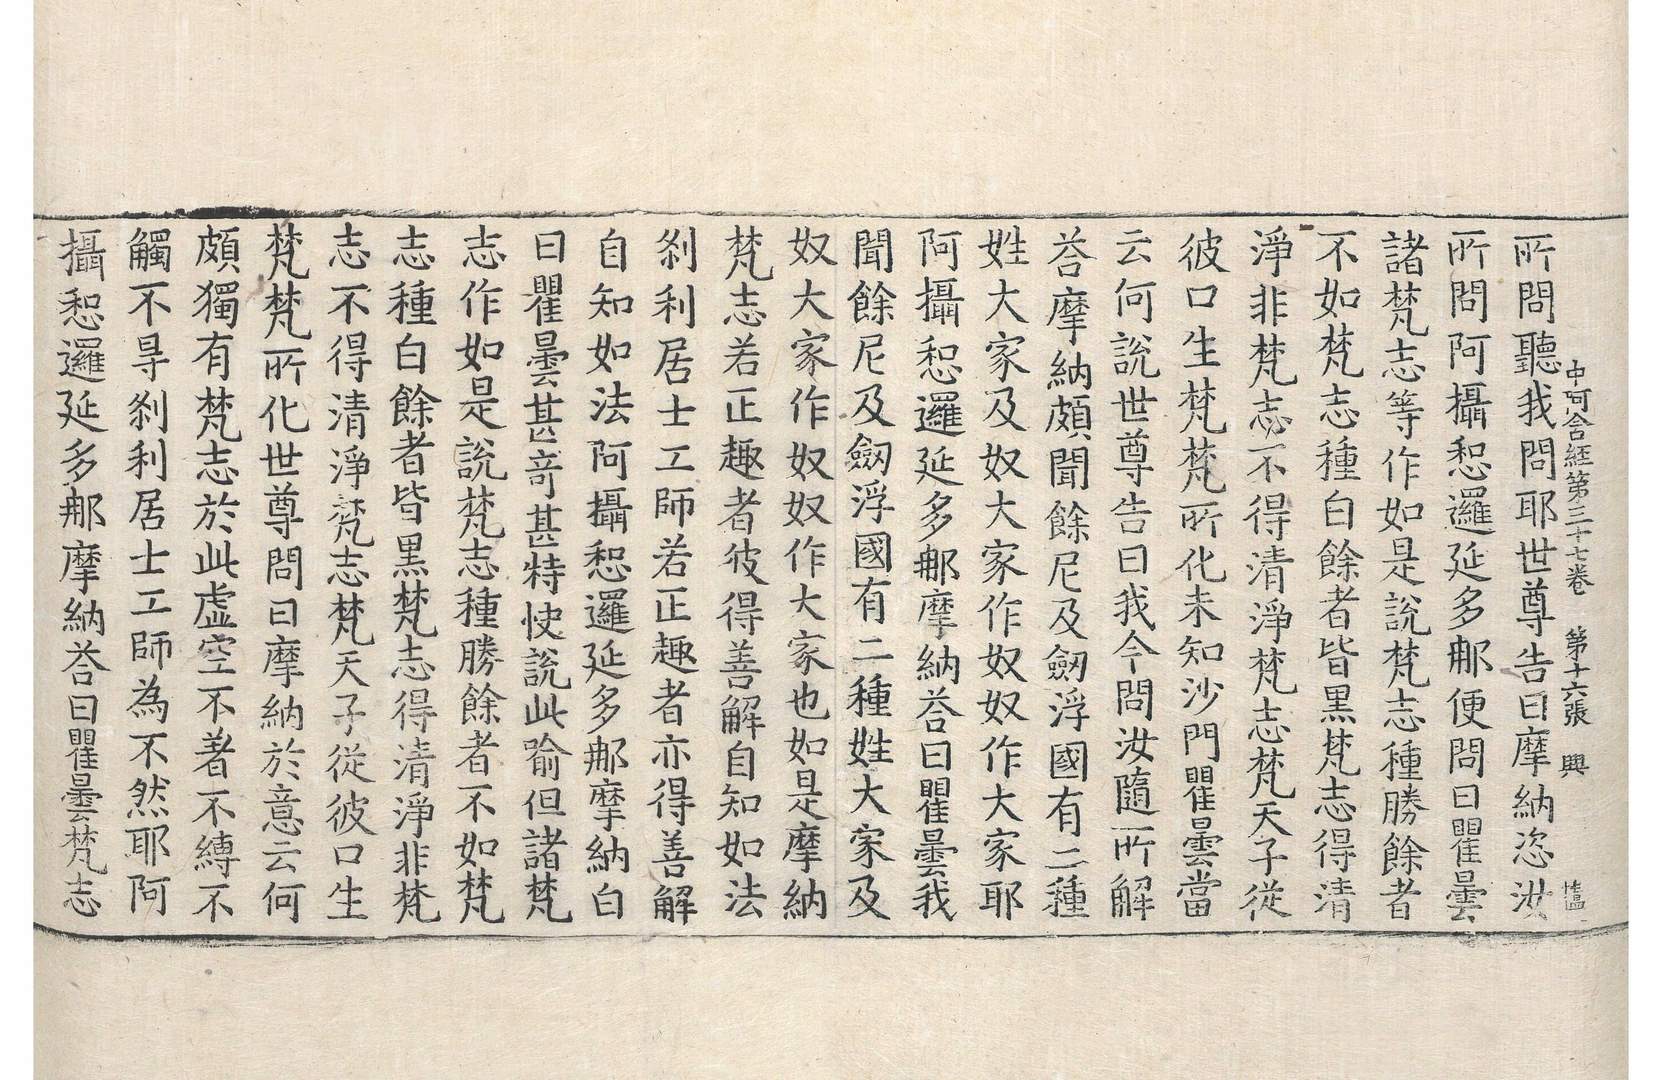 中阿含經第三十七卷　第十六張　興
所問聽我問耶世尊告曰摩納恣汝
所問阿攝惒邏延多那便問曰瞿曇
諸梵志等作如是說梵志種勝餘者
不如梵志種白餘者皆黒梵志得清
淨非梵志不得清淨梵志梵天子從
彼口生梵梵所化未知沙門瞿曇當
云何說世尊告曰我今問汝隨所解
荅摩納頗聞餘尼及劔浮國有二種
姓大家及奴大家作奴奴作大家耶
阿攝惒邏延多那摩納荅曰瞿曇我
聞餘尼及劔浮國有二種姓大家及
奴大家作奴奴作大家也如是摩納
梵志若正趣者彼得善解自知如法
刹利居士工師若正趣者亦得善解
自知如法阿攝惒邏延多那摩納白
曰瞿曇甚竒甚特快說此喻但諸梵
志作如是說梵志種勝餘者不如梵
志種白餘者皆黒梵志得清淨非梵
志不得清淨梵志梵天子從彼口生
梵梵所化世尊問曰摩納於意云何
頗獨有梵志於此虛空不著不縛不
觸不㝵刹利居士工師為不然耶阿
攝惒邏延多那摩納荅曰瞿曇梵志